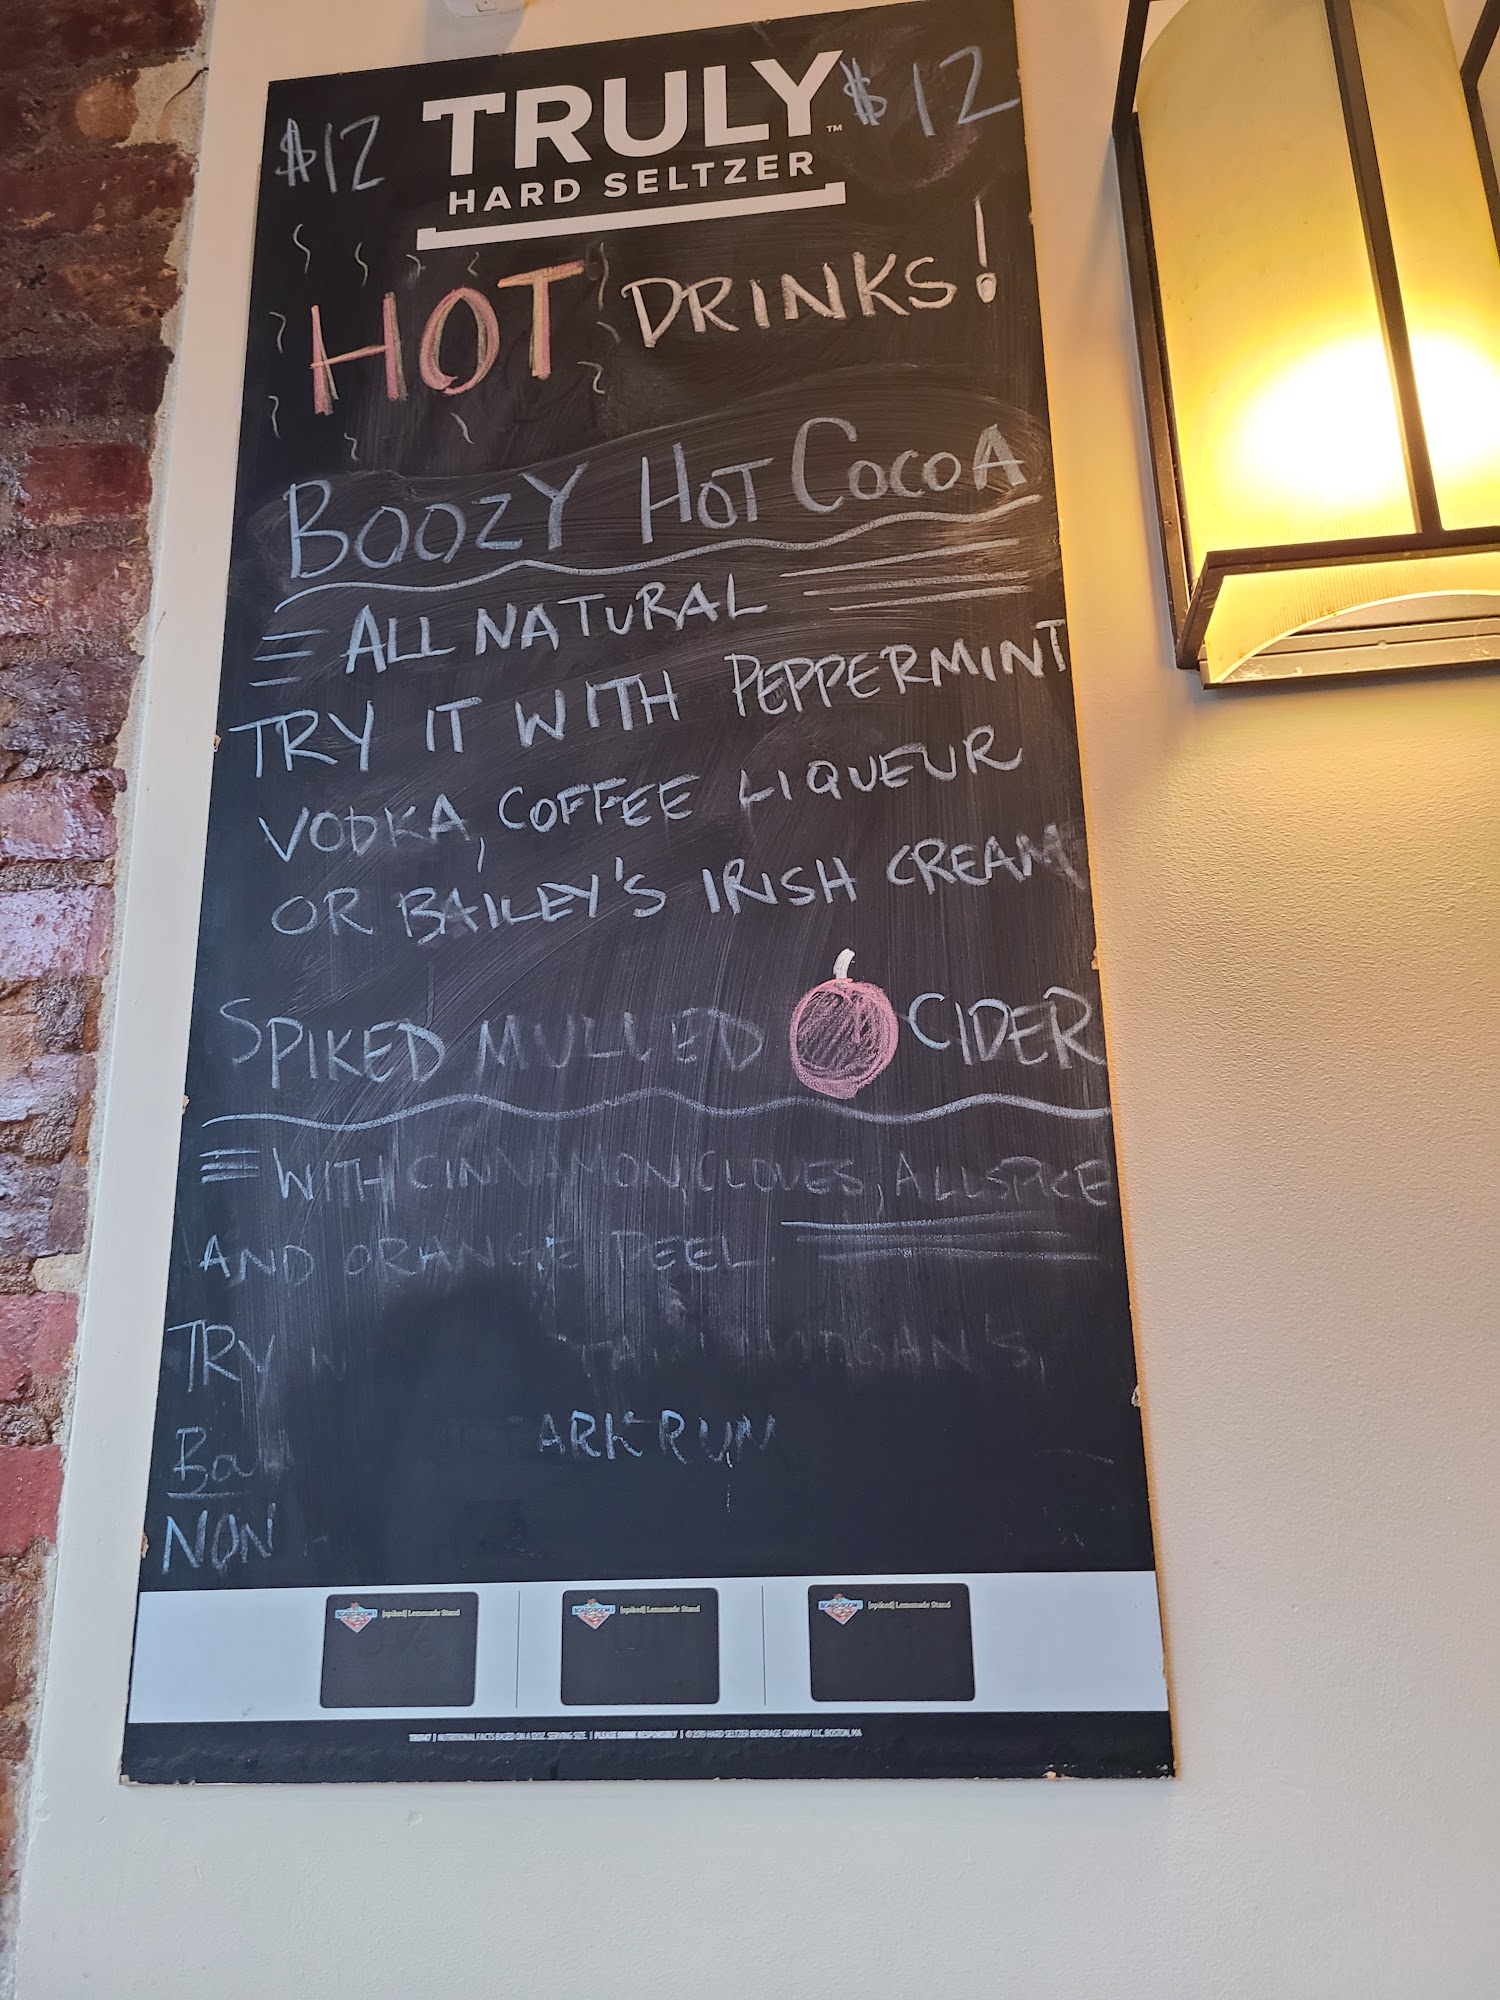 $12 TRULY™ $12
HARD SELTZER
HOT DRINKS!
BOOZY HOT COCOA
ALL NATURAL
TRY IT WITH PEPPERMINT
VODKA, COFFEE LIQUEUR
OR BAILEY'S IRISH CREAM
SPIKED MULLED CIDER
WITH CINNAMON, CLOVES, ALLSPICE
AND ORANGE PEEL.
TRY
ARK RUM
NON
[spiked] Lemonade Stand [spiked] Lemonade Stand [spiked] Lemonade Stand
NUTRITIONAL FACTS BASED ON A 12OZ. SERVING SIZE. | PLEASE DRINK RESPONSIBLY | © 2019 HARD SELTZER BEVERAGE COMPANY LLC, BOSTON, MA